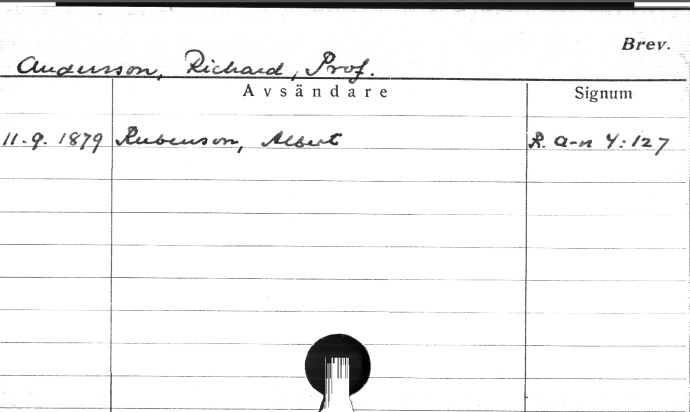 Brev.
Andersson, Richard, Prof.
Avsändare Signum
11.9. 1879 Rubenson, Albert R. a-n 4:127